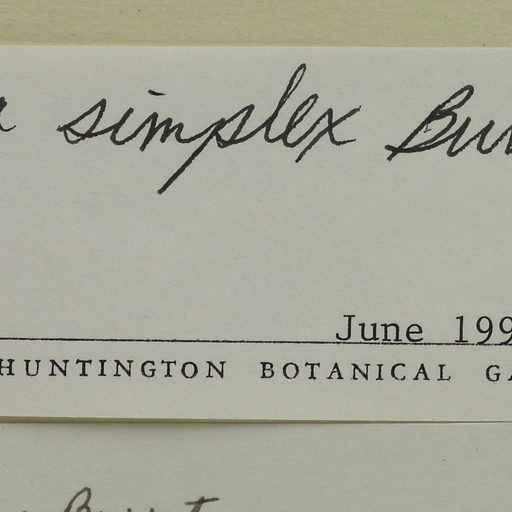 a simplex Bur
June 199
HUNTINGTON BOTANICAL GA
Burrt